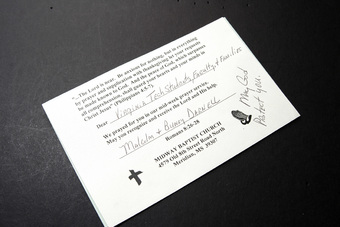 "...The Lord is near. Be anxious for nothing, but in everything
by prayer and supplication with thanksgiving let your requests
be made known to God. And the peace of God, which surpasses
all comprehension, shall guard your hearts and your minds in
Christ Jesus" (Philippians 4:5-7).
Dear Virginia Tech Students, Faculty & Families
We prayed for you in our mid-week prayer service.
May you recognize and receive the Lord and His help.
Malcolm & Bunny
Romans 8:26-28
MIDWAY BAPTIST CHURCH
4579 Old 8th Street Road North
Meridian, MS 39307
May God
Assist you.